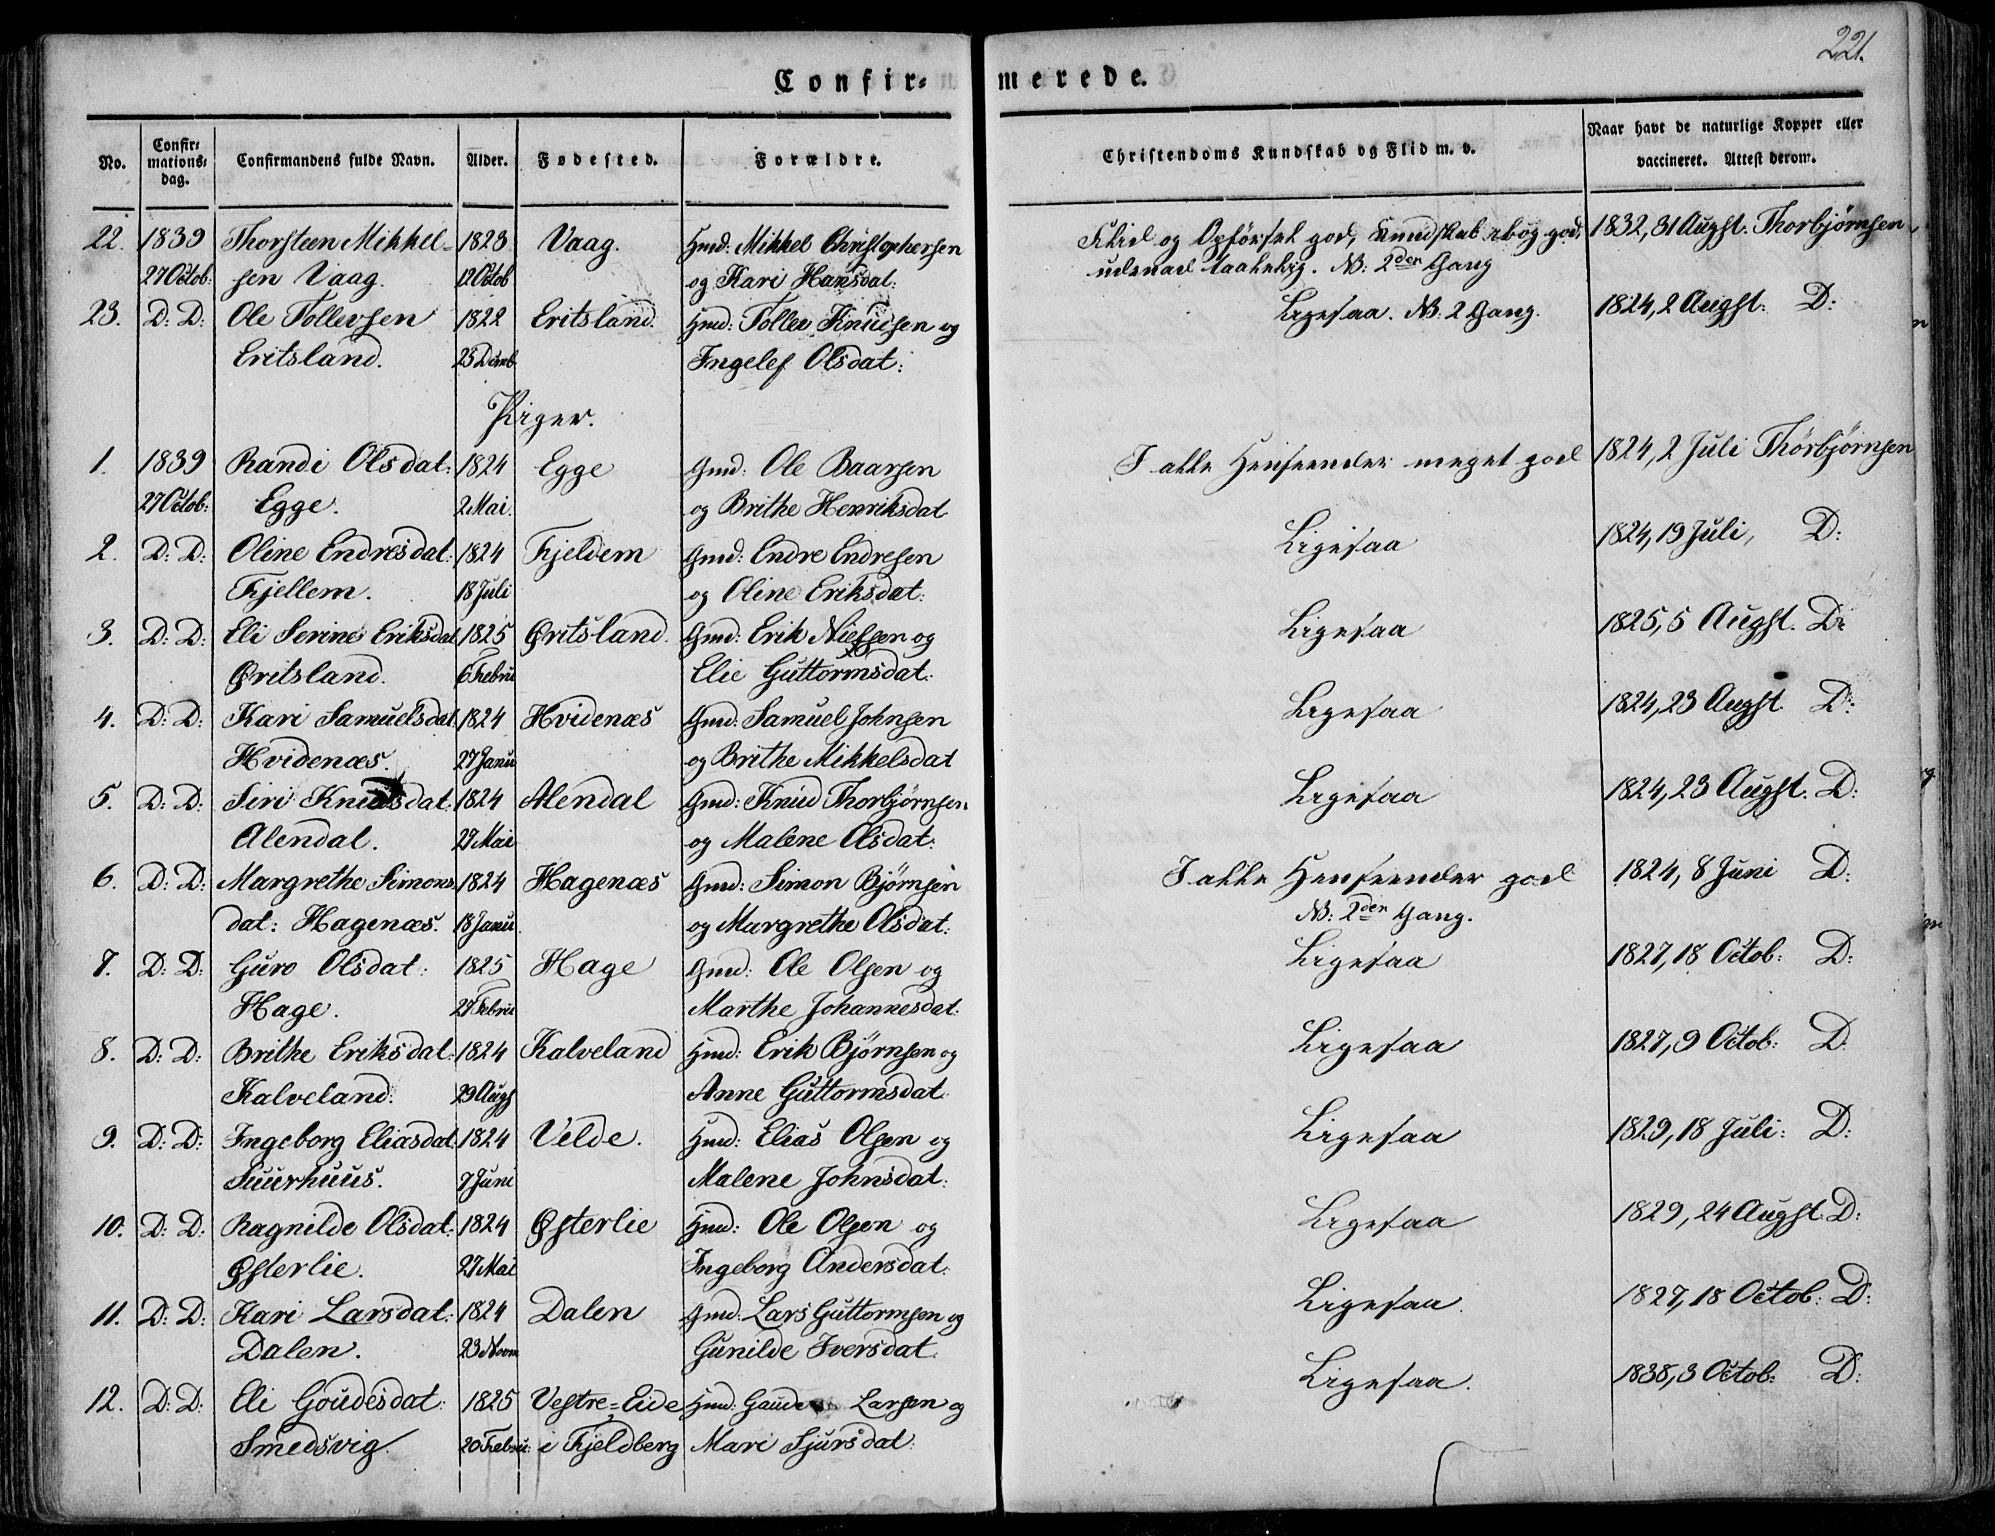 221.
Confir- merede.
No. Confirmations-dag. Confirmandens fulde Navn. Alder. Fødested. Forældre. Christendoms Kundskab og Flid m. v. Naar havt de naturlige Kopper eller vaccineret. Attest derom.
22. 1839 Thorsteen Mikkel- 1823 Vaag. Hmd: Mikkel Christophersen Flid og Opførsel god, Kundskab god, 1832, 31 Augst. Thorbjørnsen
27 Octob: sen Vaag. 12 Octob og Kari Hansdat: udenad taalelig. NB: 2den Gang
23. D: D: Ole Tollevsen 1822 Eritsland. Hmd: Tollev Knudsen og Ligesaa. NB: 2 Gang. 1824, 2 Augst: D:
Eritsland. 25 Decmb Ingelef Olsdat:
Piger.
1. 1839 Randi Olsdat: 1824 Egge Gmd: Ole Baarsen I alle Henseender meget god 1824, 2 Juli Thorbjørnsen
27 Octob: Egge. 2 Mai. og Brithe Henriksdat
2. D: D: Oline Endresdat: 1824 Fjeldem Gmd: Endre Endresen Ligesaa 1824, 19 Juli, D:
Fjellem. 18 Juli og Oline Eriksdat:
3. D: D: Eli Serine Eriksdat 1825 Øritsland. Gmd: Erik Nielsen og Ligesaa 1825, 5 Augst. D:
Øritsland. 6 Febru Elie Guttormsdat:
4. D: D: Kari Samuelsdat. 1824 Hvidenæs Gmd: Samuel Johnsen Ligesaa 1824, 23 Augst D:
Hvidenæs. 27 Janu og Brithe Mikkelsdat
5. D: D: Siri Knudsdat. 1824 Alendal Gmd: Knud Thorbjørnsen Ligesaa 1824, 23 Augst. D:
Alendal. 29 Mai og Malene Olsdat:
6. D: D: Margrethe Simons 1824 Hagenæs Gmd: Simon Bjørnsen I alle Henseender god 1824, 8 Juni D:
dat: Hagenæs. 18 Janu. og Margrethe Olsdat: NB: 2den Gang.
7. D: D: Guro Olsdat: 1825 Hage Gmd: Ole Olsen og Ligesaa 1827, 18 Octob: D:
Hage. 27 Febru Marthe Johannesdat:
8. D: D: Brithe Eriksdat: 1824 Kalveland Hmd: Erik Bjørnsen og Ligesaa 1827, 9 Octob: D.
Kalveland. 29 Augs Anne Guttormsdat.
9. D: D: Ingeborg Eliasdat. 1824 Velde. Hmd: Elias Olsen og Ligesaa 1829, 18 Juli: D:
Suurhuus. 7 Juni Malene Johnsdat:
10. D: D: Ragnilde Olsdat: 1824 Østerlie Hmd: Ole Olsen og Ligesaa 1829, 24 Augst. D:
Østerlie. 27 Mai Ingeborg Andersdat:
11. D: D: Kari Larsdat: 1824 Dalen Gmd: Lars Guttormsen og Ligesaa. 1827, 18 Octob: D:
Dalen. 23 Novm Gunilde Iversdat.
12. D: D: Eli Goudesdat: 1825 Vestre=Eide Hmd: Gaude Larsen og Ligesaa. 1838, 3 Octob: D:
Smedsvig. 20 Febru: i Fjeldberg Mari Sjursdat: